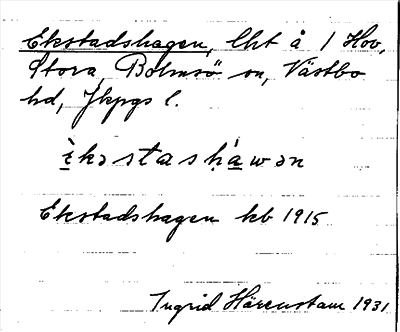 Ekstadshagen, lht å 1 Hov,
Stora, Bolmsö sn, Västbo
hd, Jkpgs l.
è̱kəstasḥá̱wən
Ekstadshagen kb 1915
Ingrid Härenstam 1931